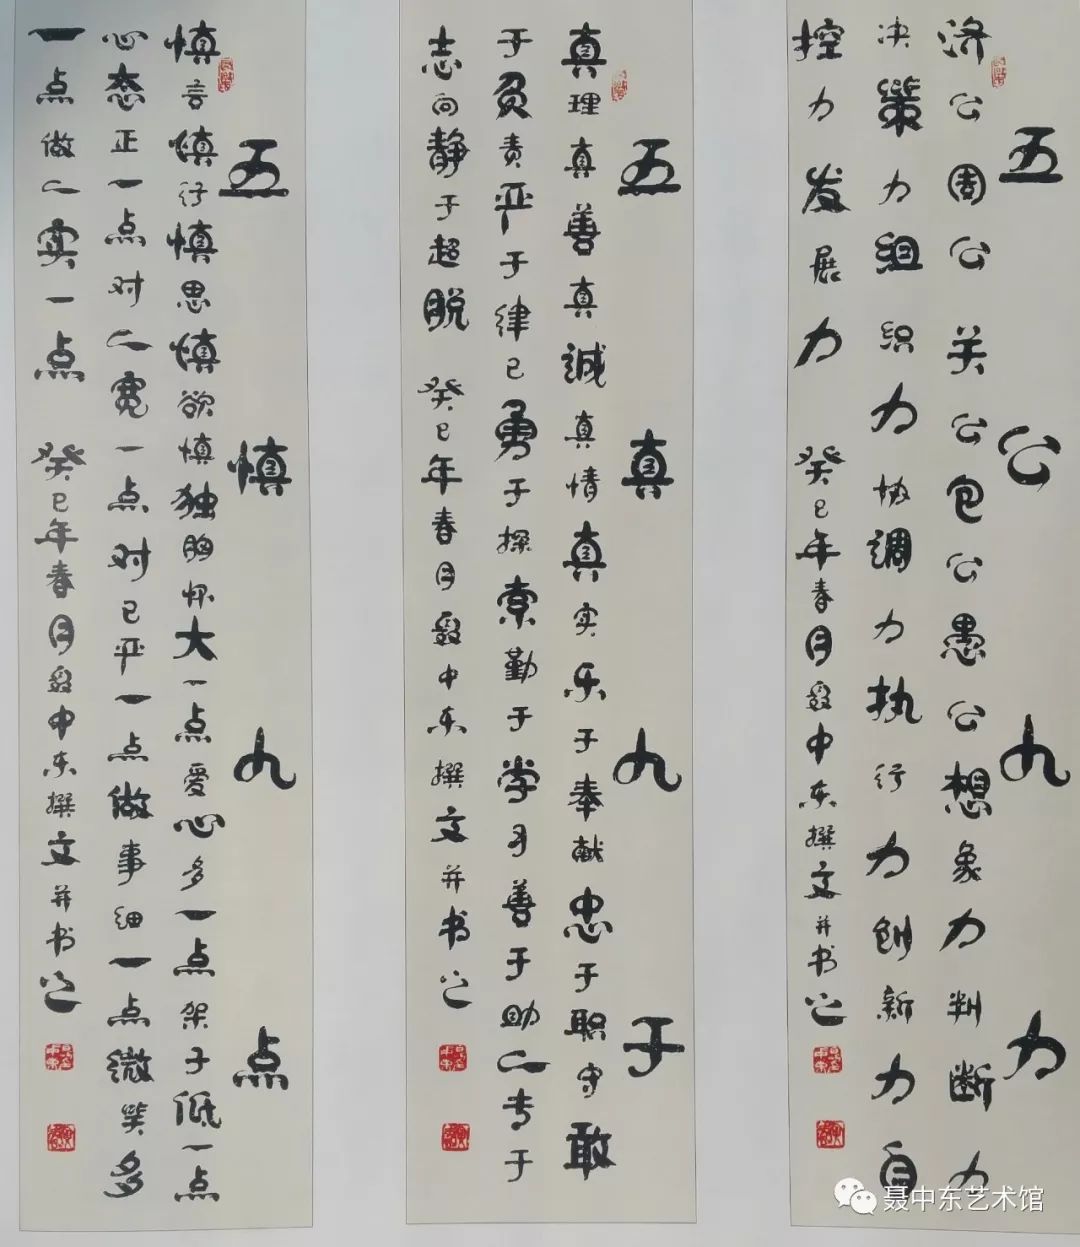 五公九力
济公周公关公包公愚公想象力判断力
决策力组织力协調力执行力创新力自
控力发展力 癸巳年春月聂中东撰文并书之
五真九于
真理真善真誠真情真实乐于奉献忠于职守敢
于负责严于律己勇于探索勤于学习善于助人专于
志向静于超脱 癸巳年春月聂中东撰文并书之
五慎九点
慎言慎行慎思慎欲慎独胸怀大一点爱心多一点架子低一点
心态正一点对人宽一点对己严一点做事细一点微笑多
一点做人实一点 癸巳年春月聂中东撰文并书之
聂中东艺术馆